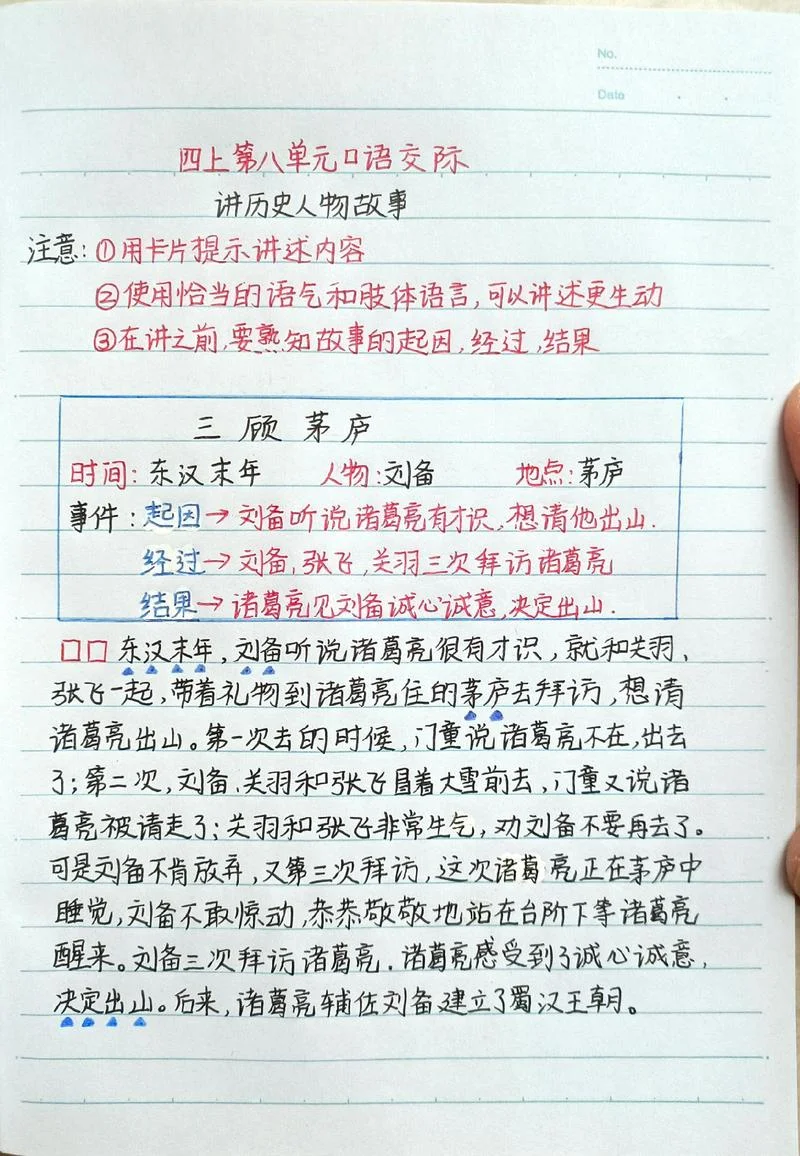 No.
Date
四上第八单元口语交际
讲历史人物故事
注意:①用卡片提示讲述内容
②使用恰当的语气和肢体语言,可以讲述更生动
③在讲之前,要熟知故事的起因,经过,结果
三顾茅庐
时间:东汉末年 人物:刘备 地点:茅庐
事件:起因→刘备听说诸葛亮有才识,想请他出山.
经过→刘备,张飞,关羽三次拜访诸葛亮
结果→诸葛亮见刘备诚心诚意,决定出山.
□□东汉末年,刘备听说诸葛亮很有才识,就和关羽、
张飞一起,带着礼物到诸葛亮住的茅庐去拜访,想请
诸葛亮出山。第一次去的时候,门童说诸葛亮不在,出去
了;第二次,刘备、关羽和张飞冒着大雪前去,门童又说诸
葛亮被请走了;关羽和张飞非常生气,劝刘备不要再去了。
可是刘备不肯放弃,又第三次拜访,这次诸葛亮正在茅庐中
睡觉,刘备不敢惊动,恭恭敬敬地站在台阶下等诸葛亮
醒来。刘备三次拜访诸葛亮.诸葛亮感受到了诚心诚意,
决定出山。后来,诸葛亮辅佐刘备建立了蜀汉王朝。